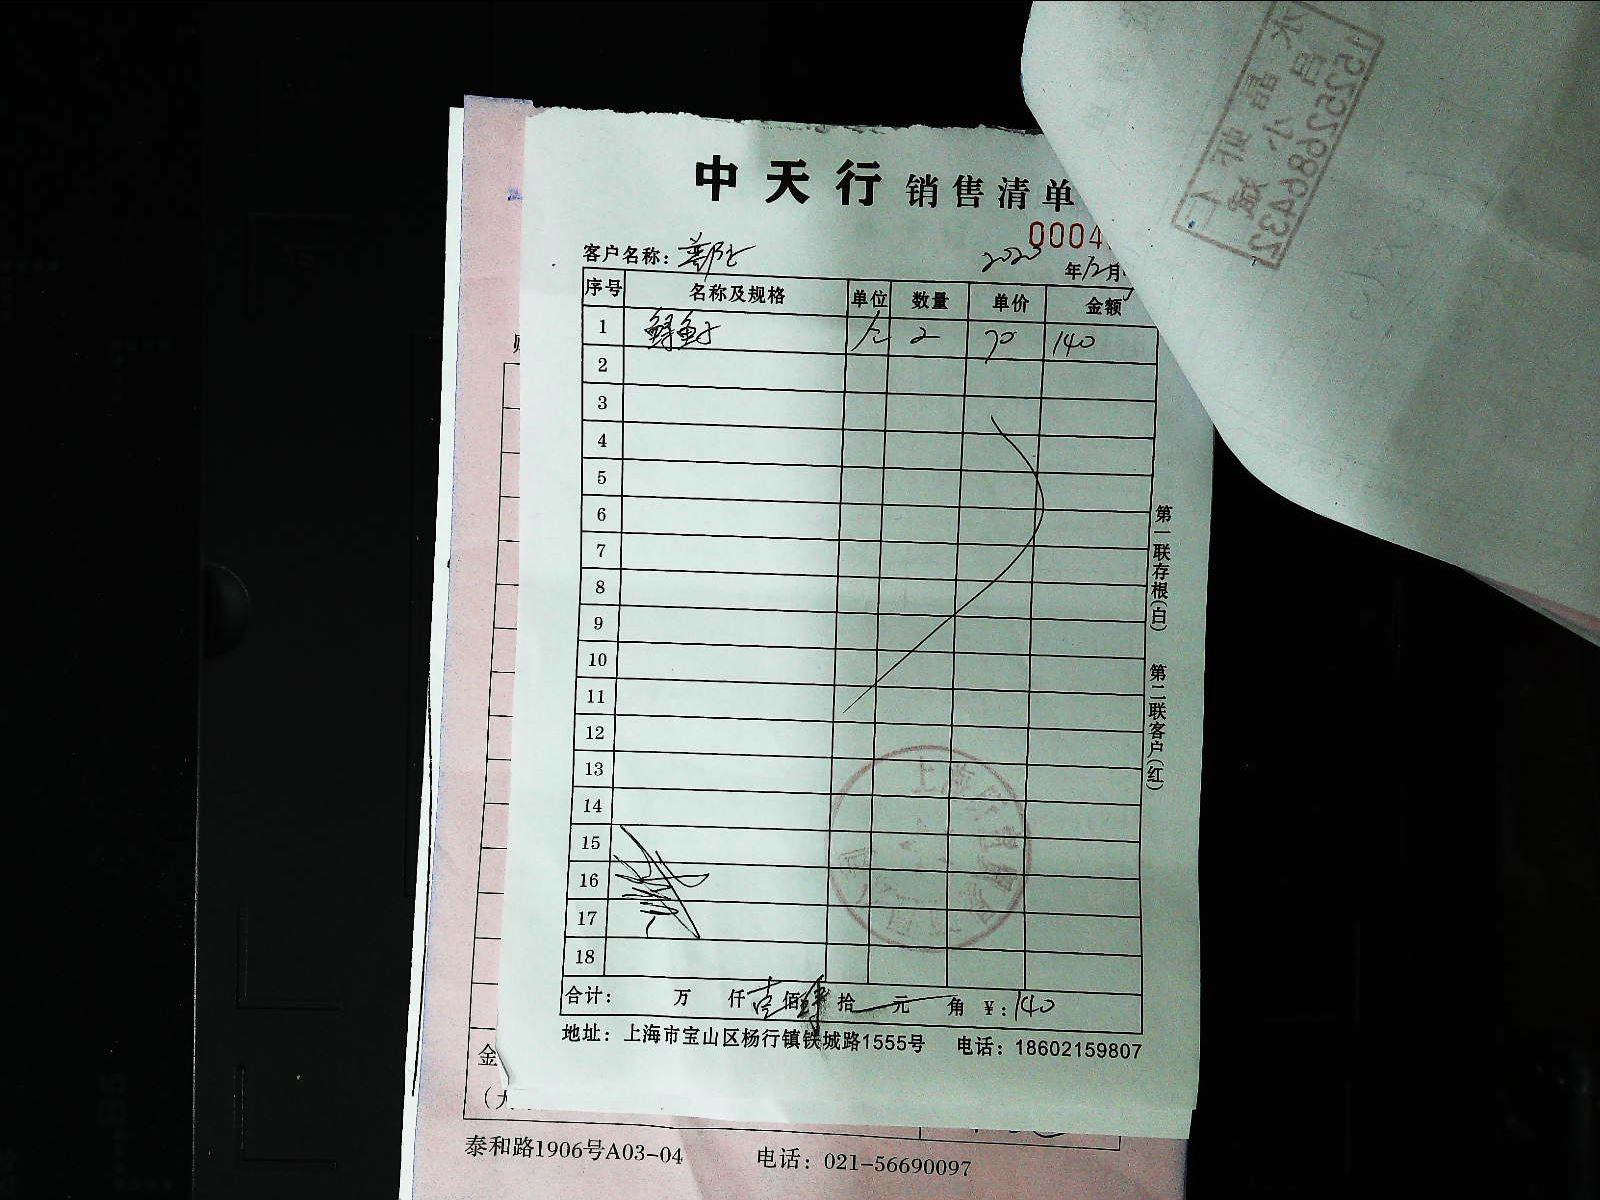 中天行 销售清单
0004
客户名称：
2020年12月
序号 名称及规格 单位 数量 单价 金额
1 鲟鱼 2 70 140
2
3
4
5
6
7
8
9
10
11
12
13
14
15
16
17
18
合计： 万 仟 壹佰肆拾 元 角 ￥：140
地址：上海市宝山区杨行镇铁城路1555号 电话：18602159807
第一联存根（白） 第二联客户（红）
金
泰和路1906号A03-04 电话：021-56690097
水晶虾仁
15252686432